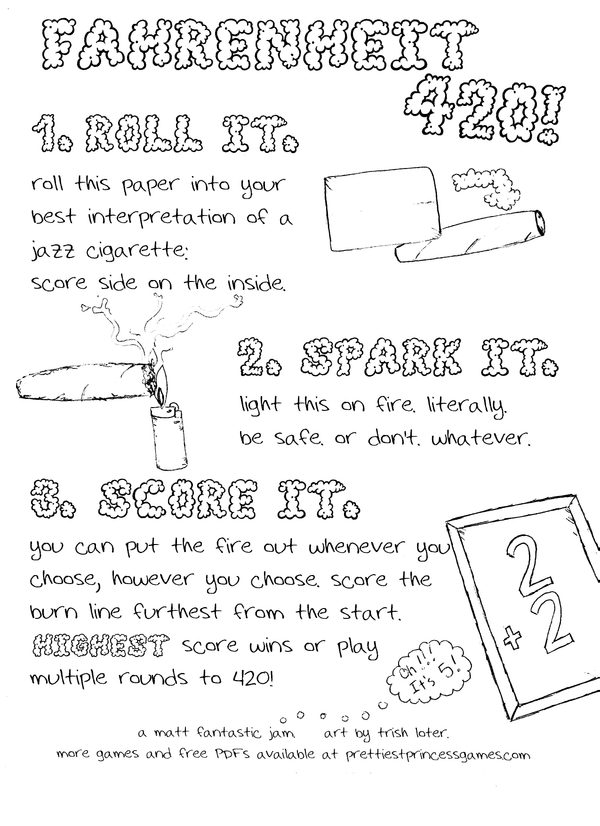 FAHRENHEIT
420!
1. ROLL IT.
roll this paper into your
best interpretation of a
jazz cigarette:
score side on the inside.
2. SPARK IT.
light this on fire. literally.
be safe. or don't. whatever.
3. SCORE IT.
you can put the fire out whenever you
choose, however you choose. score the
burn line furthest from the start.
HIGHEST score wins or play
multiple rounds to 420!
2
+ 2
Oh !!!
It's 5!
a matt fantastic jam art by trish loter.
more games and free PDFs available at prettiestprincessgames.com